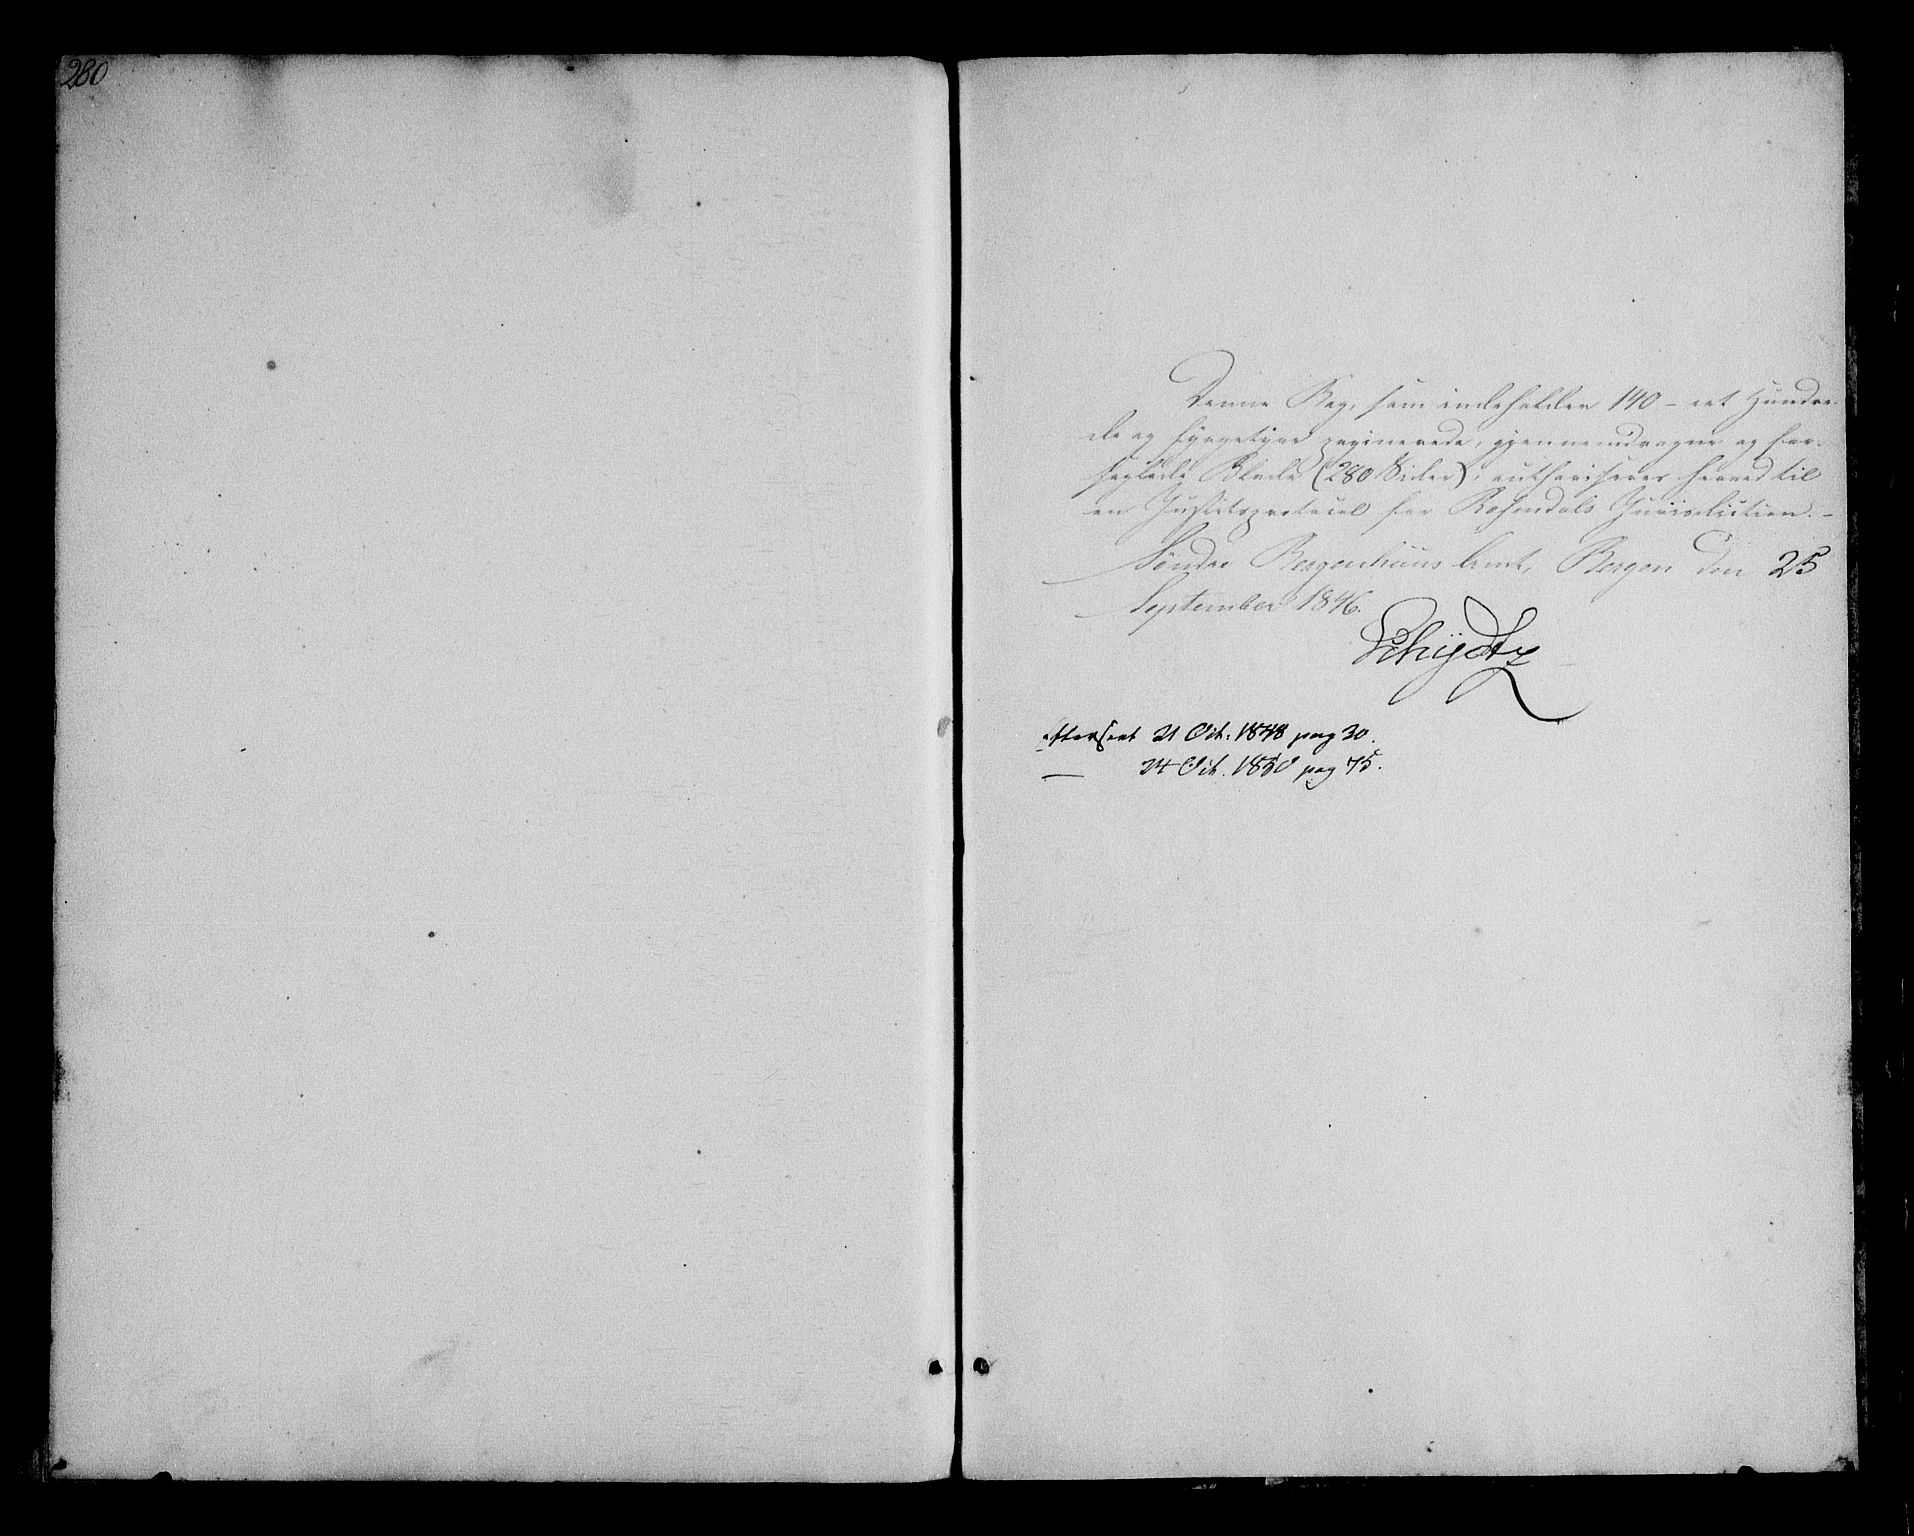 280
Denne Bog, som indeholder 140 - eet Hundre-
de og fyrgetyve paginerede, gjennemdragne og for-
seglede Blade (280 Sider), authoriseres herved til
en Justitsprotocol for Rosendals Jurisdiction. -
Søndre Bergenhuus Amt, Bergen den 25
September 1846.
Schydtz
efterseet 21 Oct. 1848 pag 30.
— 24 Oct. 1850 pag 75.